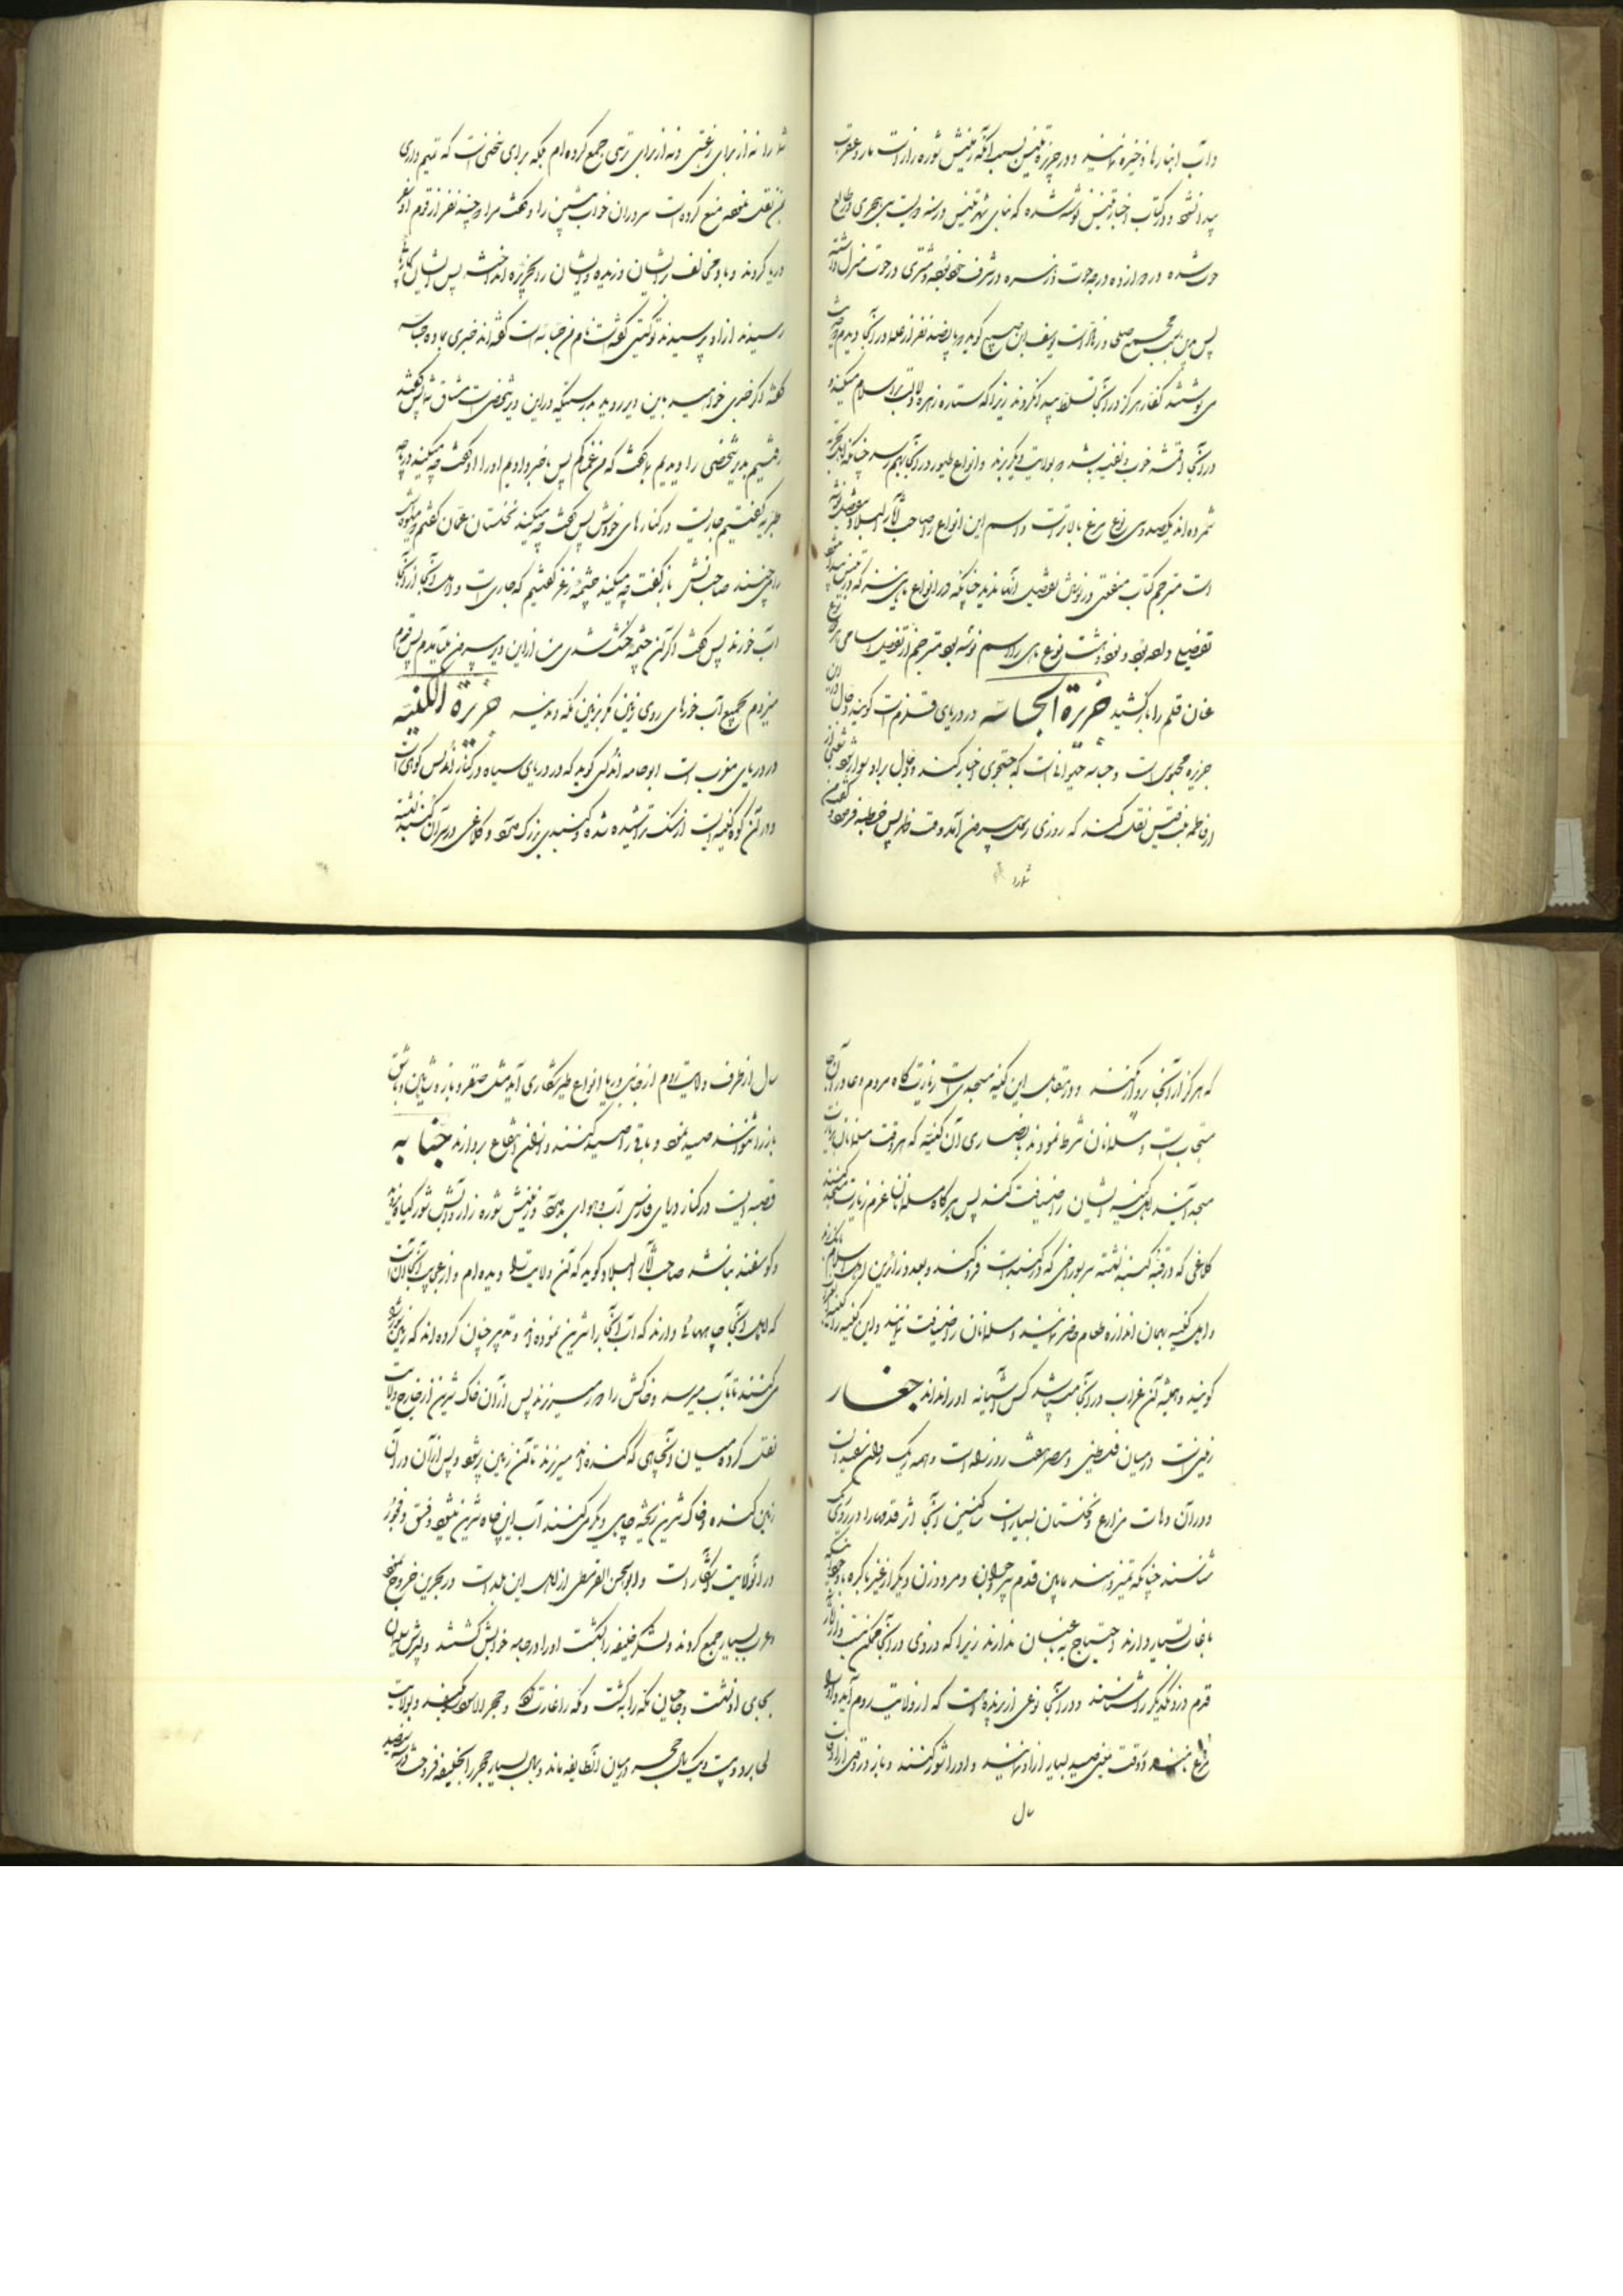 و آب انبارها ذخیره نمایند و در جزیره تنیس بسبب آنکه زمینش شوره زار است مار و عقرب
پیدا نشود و در کتاب اخبار تنیس نوشته شده که بنای شهر تنیس در سنه دویست سی هجری و طالع
حوت شده در دوازده درجه حوت و زهره در شرف خود بوده و مشتری در حوت منزل داشته
پس بدین سبب مجمع صلحا و زهاد است یوسف ابن صبیح گوید در پانصد نفر از علما در آنجا دیدم
می نوشتند کفار هرگز در آنجا تسلط پیدا نکردند زیرا که ستاره زهره دلالت بر اسلام میکند
در آنجا اقمشه خوب و نفیسه باشد بولایت دیگر برند و انواع طیور در آنجا بهم رسد چنانکه
شمرده اند یکصد و سی نوع مرغ بالاتر است و اسم این انواع را صاحب آثار البلاد مفصل نوشته
است مترجم کتاب منفعتی در نوشتن تفصیل آنها ندید چنانکه در انواع ماهی نیز که در تنیس
تفصیلی داده بود و نود و هشت نوع ماهی را اسم نوشته بود مترجم از تفصیل اسامی
عنان قلم را باز کشید جزیرة الجساسه در دریای قلزم است گویند دجال در آن
جزیره محبوس است و جساسه حیوانات است که جستجوی اخبار کند و دجال بر او سوار شود شعبی از
از فاطمه بنت قیس نقل کند که روزی رسول بیرون آمد وقت ظهر پس خطبه فرمود
شما را
شما را نه از برای رغبتی و نه از برای ترسی جمع کرده ام بلکه برای سخنی است که تمیم داری
بمن نقل نموده منع کرده است سروران خواب پیشین را و گفت مرا چند نفر از قوم او سفر
دریا کردند و باد مخالف بر ایشان وزیده و ایشان را بجزیره انداخت پس ایشان
رسیدند از او پرسیدند تو کیستی گفت نام من جساسه است گفته اند خبری بما ده جساسه
گفت اگر خبری خواهید باین دیر روید بدرستیکه در این دیر شخصی است مشتاق شما پس گفتند
رفتیم بدیر شخصی را دیدیم بما گفت که من غمناکم پس باخبر دادیم او را او گفت چه میکند دریاچه
طبریه گفتیم جاریست در کنارهای خودش پس گفت چه میکند نخلستان عمان گفتیم
را می چینند صاحبانش باز گفت چه میکند چشمه زغر گفتیم که جاری است و اهل آنجا از آنجا
آب خورند پس گفت اگر آن چشمه خشک شدی من از این دیر بیرون می آیدم پس قدم
میزدم بجمیع آب خورهای روی زمین مگر بزمین مکه و مدینه جزیرة الکنیسه
در دریای مغرب است ابو حامد اندلسی گوید که در دریای سیاه در کنار اندلس کوهی است
و در آن کوه کنیسه ایست از سنگ تراشیده شده و گنبدی بزرگ دارد و کلاغی در سر آن گنبد نشسته
که هرگز از آنجا پرواز نکند و در مقابل این کنیسه مسجدی است زیارت گاه مردم و دعا در آن
مستجاب است و مسلمانان شرط نمودند بنصاری آن کنیسه که هر وقت مسلمانان بزیارت
مسجد آیند اهل کنیسه ایشان را ضیافت کنند پس هرگاه مسلمانان عزم زیارت مسجد کنند
کلاغی که در قبه کنیسه نشسته سر بسوراخی که در گنبد است فرو کند و بعدد زائرین اهل اسلام بانگ زند
و اهل کنیسه بهمان اندازه طعام حاضر نمایند و مسلمانان را ضیافت نمایند و این کنیسه را
گویند و همیشه آن غراب در آنجا میباشد کس آشیانه او را نداند جفار
زمینی است در میان فلسطین و مصر هفت روزه راه است و همه ریگ روان سفید است
و در آن دهات مزارع و نخلستان بسیار است ساکنین آنجا اثر قدمها را در روی ریگ
شناسند چنانکه تمیز دهند مابین قدم پیر و جوان و مرد و زن و دیگر از غیر باکره
باغات بسیار دارند احتیاج به باغبان ندارند زیرا که دزدی در آنجا ممکن نیست
قدم دزد یکدیگر را شناسند و در آنجا نوعی از پرنده است که از ولایت روم آید و او را
مرغ وقت معین صید بسیار از او نمایند و او را شور کنند و باز در وقتی از اوقات
سال
سال از طرف ولایت روم از جانب دریا انواع طیر شکاری آید مثل صقر و باز و شاهین و باشق
باز را نتوانند صید نمود و باقی را صید کنند و از فن انتفاع بردارند جنابه
قصبه ایست در کنار دریای فارس آب و هوای بد دارد و زمینش شوره زار و آبش شور گیاه نروید
و گوسفند نباشد صاحب آثار البلاد گوید که آن ولایت را دیده ام و از عجایب آنجا آنست
که اهل آنجا چاههائی دارند که آب آنجا را شیرین نموده اند و تدبیر چنان کرده اند که زمین شوره
می کنند تا بآب میرسد و خاکش را دور میریزند پس از آن خاک شیرین از خارج ولایت
نقل کرده میان آنچه ای که کنده اند میریزند تا آن زمین پر شود و پس از آن در آن
زمین کنده و خاک شیرین ریخته چاهی دیگر می کنند آب این چاه شیرین میشود و فسق و فجور
در آنولایت آشکار است و ابوالحسن القرمطی از اهل این بلد است در بحرین خروج نمود
و عرب بسیار جمع کردند و لشکر خلیفه را بکشت او را در جامه خوابش کشتند و پسرش سلیمان
بجای او نشست و حجاج مکه را بکشت و مکه را غارت کرد و حجر الاسود بکند و بولایت
لحسا برد و بیست و یک سال حجر در میان آنطایفه ماند و بمال بسیار حجر را بخلیفه فروخت